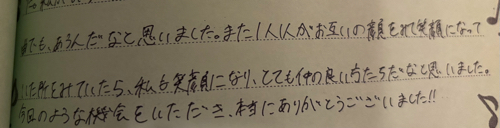 でも、あるんだなと思いました。また1人1人がお互いの顔をみて笑顔になって
いた所をみていたら、私も笑顔になり、とても仲の良い方たちだなと思いました。
今回のような機会をいただき、本当にありがとうございました!!